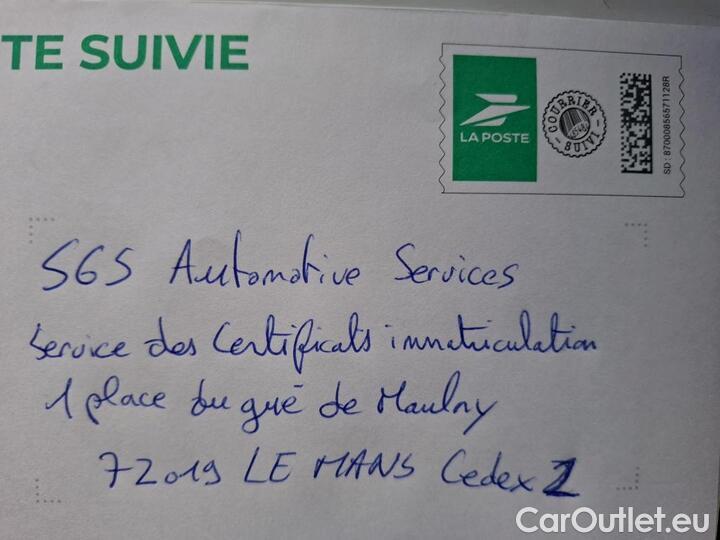 TE SUIVIE
LA POSTE
COURRIER SUIVI
SD : 87000856571128R
SGS Automotive Services
Service des Certificats immatriculation
1 place du gué de Maulny
72019 LE MANS Cedex 2
CarOutlet.eu